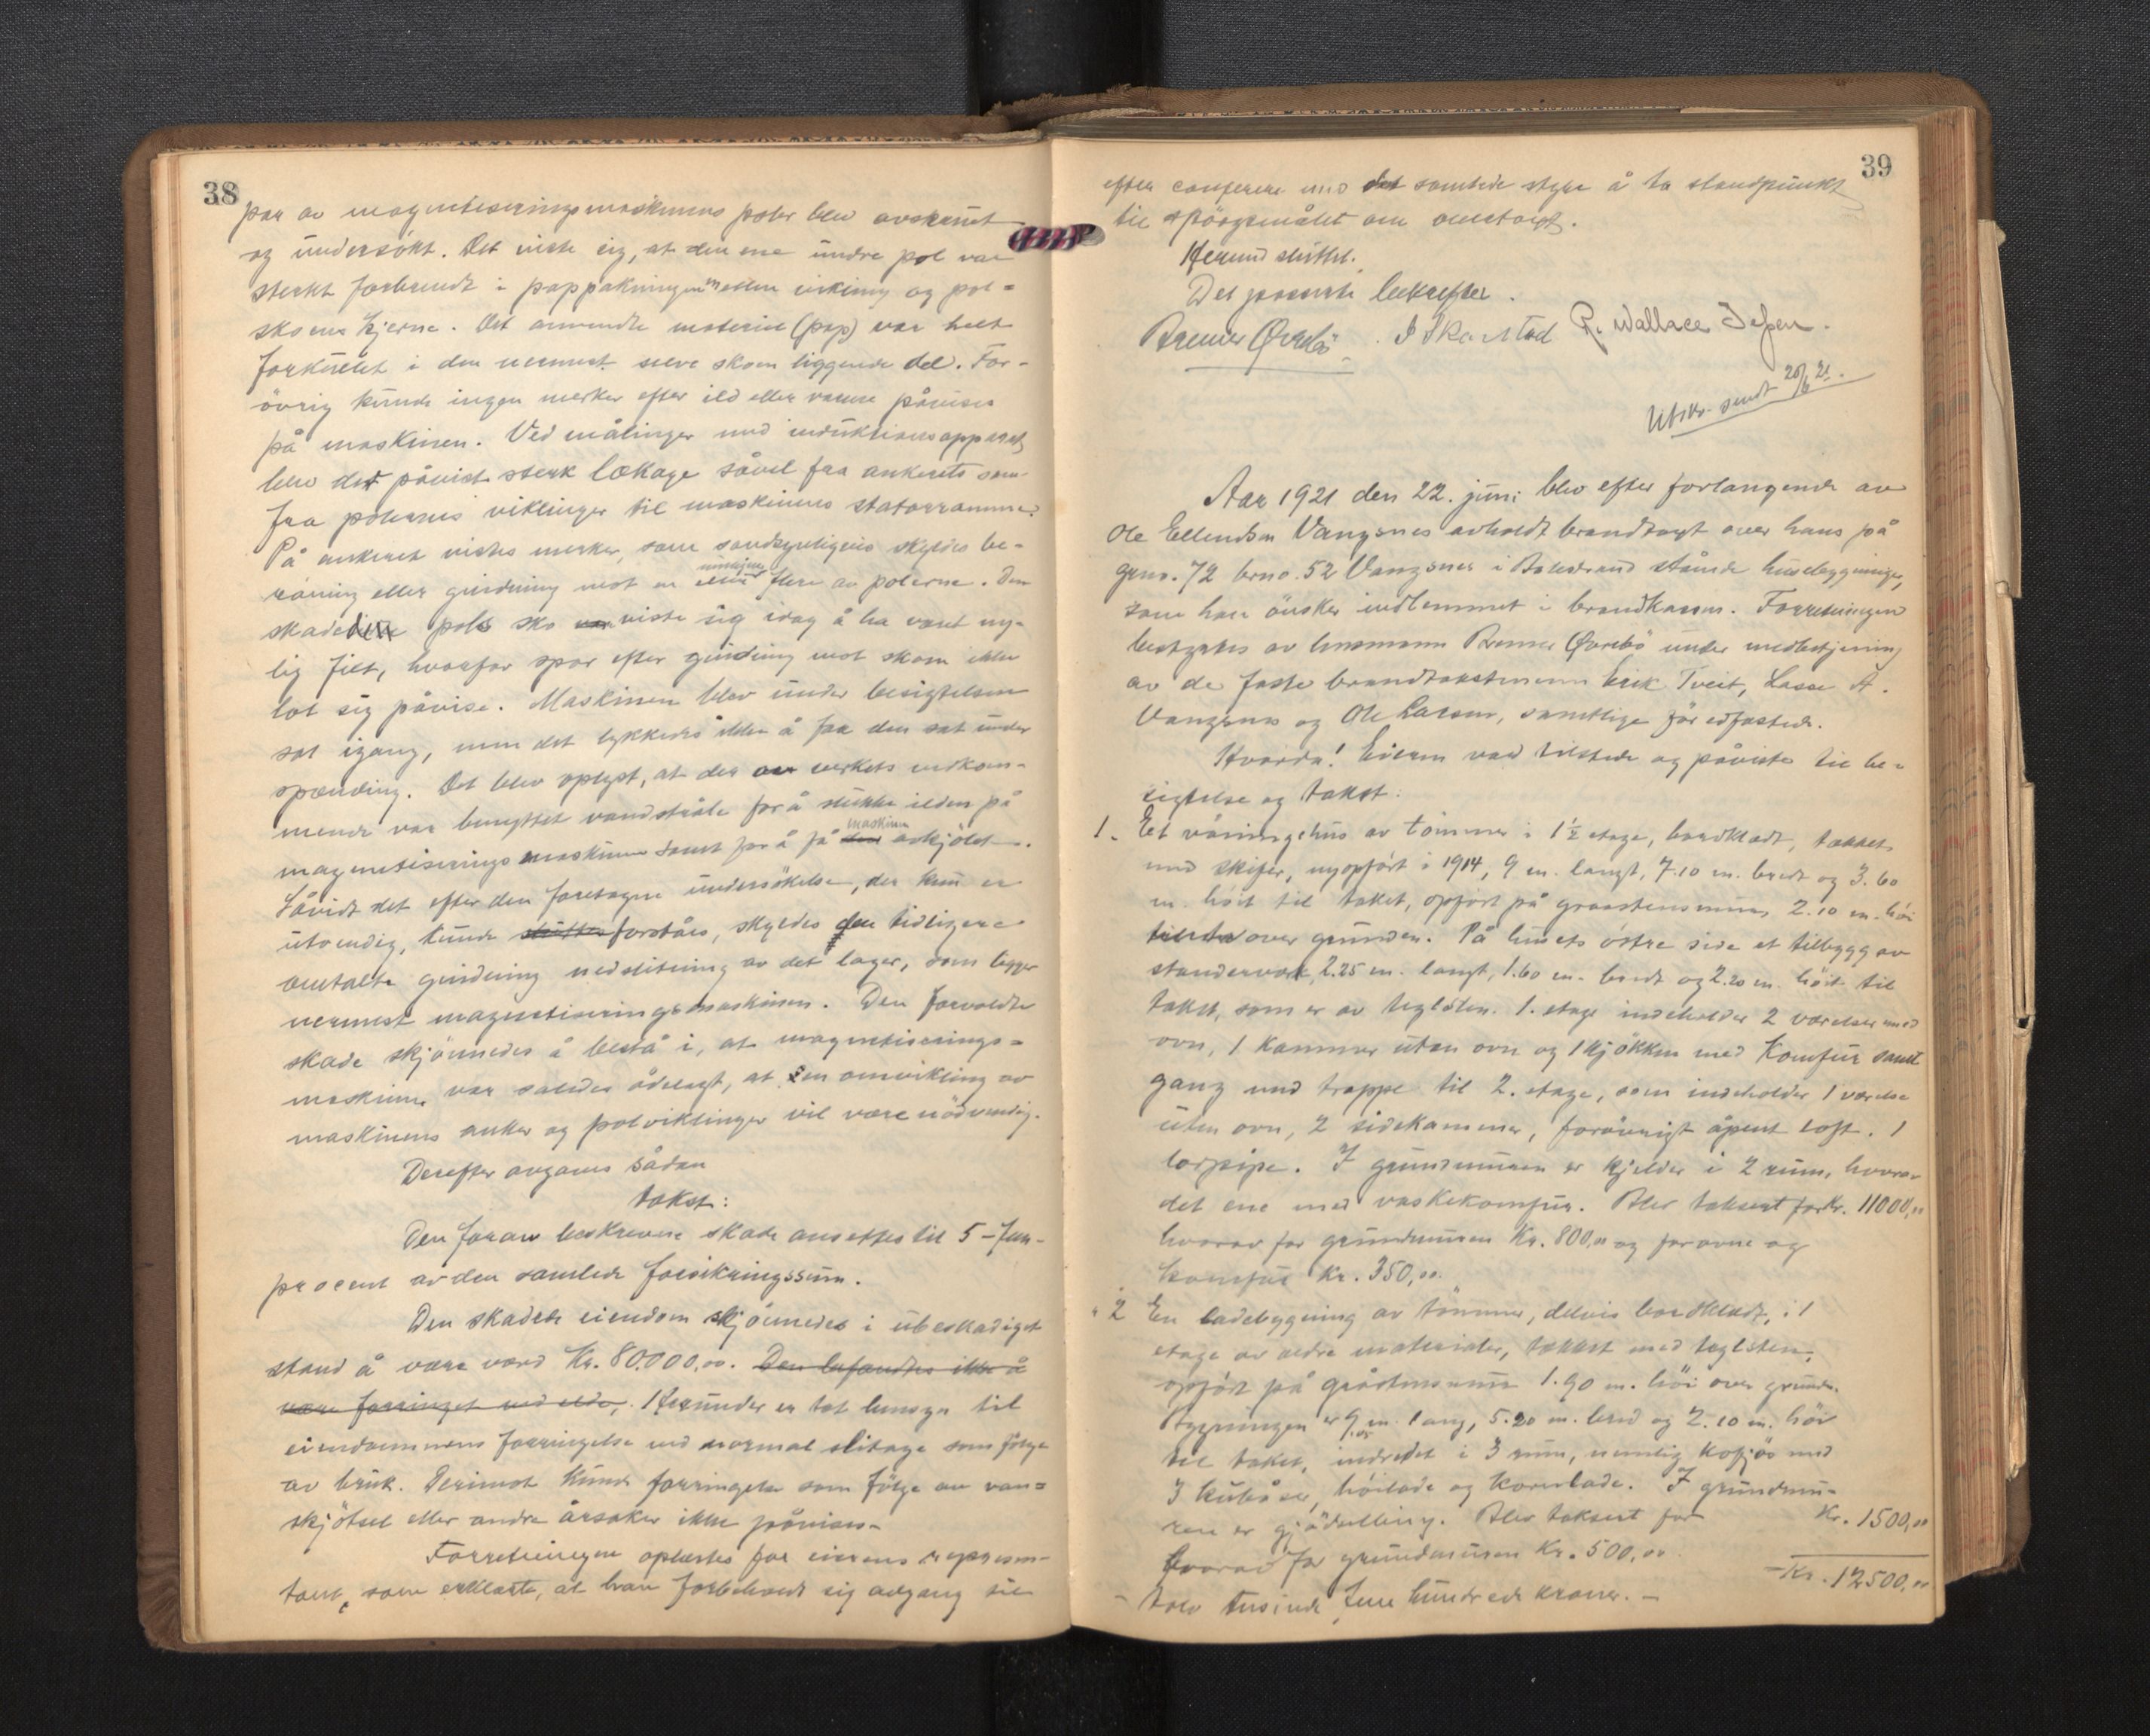 38
par av magnetiseringsmaskinens poler blev avskruet
og undersökt. Det viste sig, at den ene undre pol var
sterkt forbrendt i pappakningen mellem vikling og pol-
skoens kjerne. Det anvendte materiel (pap) var helt
forkullet i den nermest selve skoen liggende del. For-
övrig kunde ingen merker efter ild eller varme påvises
på maskinen. Ved målinger med induktionsapparat
blev det påvist sterk lækage såvel fra ankerets som
fra polernes viklinger til maskinens statorramme.
På ankeret vistes merker, som sandsynligvis skyldes be-
röring eller gnidning mot en eller flere av polerne. Den
skadede pols sko viste sig idag å ha vært ny-
lig filt, hvorfor spor efter gnidning mot skoen ikke
lot sig påvise. Maskinen blev under besigtelsen
sat igang, men det lykkedes ikke å faa den sat under
spænding. Det blev oplyst, at der av verkets vedkom-
mende var benyttet vandstråle for å slukke ilden på
magnetiseringsmaskinen samt for å få maskinen avkjölet.
Såvidt det efter den foretagne undersökelse, der kun er
utvendig, kunde forståes, skyldes den tidligere
omtalte gnidning nedslitning av det lager, som ligger
nermest magnetiseringsmaskinen. Den forvoldte
skade skjönnedes å bestå i, at magnetiserings-
maskinen var således ödelagt, at en omvikling av
maskinens anker og polviklinger vil være nödvendig.
Derefter avgaves sådan
takst:
Den foran beskrevne skade ansettes til 5 - fem -
procent av den samlede forsikringssum.
Den skadete eiendom skjönnedes i ubeskadiget
stand å være værd Kr. 80.000,00. Den befandtes ikke å
være forringet ved elde, Herunder er tat hensyn til
eiendommens forringelse ved normal slitage som fölge
av bruk. Derimot kunde forringelse som fölge av van-
skjötsel eller andre årsaker ikke påvises.
Forretningen oplæstes for eierens represen-
tant, som erklærte, at han forbeholdt sig adgang til
39
efter conferere med det samlede styre å ta standpunkt
til spörgsmålet om omtakst.
Hermed sluttet.
Det passerte bekræfter.
Bremer Øvrebö J Skarstad R. Wallace Jepsen.
Utskr. sendt 20/6 21.
Aar 1921 den 22. juni blev efter forlangende av
Ole Ellendsen Vangsnes avholdt brandtaxt over hans på
grno. 72 brno. 52 Vangsnes i Balestrand stående husebygninger,
som han önsker indlemmet i brandkassen. Forretningen
bestyrtes av lensmann Bremer Øvrebö under medbetjening
av de faste brandtakstmenn Erik Tveit, Lasse A.
Vangsnes og Ole Larsen, samtlige för edfæstede.
Hvorda! Eieren var tilstede og påviste til be-
sigtelse og takst:
1. Et våningshus av tömmer i 1½ etage, bordklædt, tækket
med skifer, nyopfört i 1914, 9 m. langt, 7.10 m. bredt og 3.60
m. höit til taket, opfört på graastensmur, 2.10 m. höi
over grunden. På husets östre side et tilbygg av
stenderverk, 2.25 m. langt, 1.60 m. bredt og 2.20 m. höit til
taket, som er av teglsten. 1. etage indeholder 2 værelser med
ovn, 1 kammer uten ovn og 1 kjökken med Komfur samt
gang med trappe til 2. etage, som indeholder 1 værelse
uten ovn, 2 sidekammer, forövrigt åpent loft. 1
lorpipe. I grundmuren er kjelder i 2 rum, hvorav
det ene med vaskekomfur. Blev taksert for Kr. 11000,00
hvorav for grundmuren Kr. 800,00 og for ovne og
komfur Kr. 350,00.
2 En ladebygning av tömmer, delvis bordklædt, i 1
etage av ældre materialer, tækket med teglsten,
opfört på gråstensmur 1.90 m. höi over grunden.
Bygningen er 9 m. lang, 5.20 m. bred og 2.10 m. höi
til taket, indredet i 3 rum, nemlig kofjös med
3 kubåser, höilade og kornlade. I grundmu-
ren er gjödselbing. Blev taksert for Kr. 1500,00
hvorav for grundmuren Kr. 500,00.
Kr. 12500,00
- tolv tusinde fem hundrede kroner. -